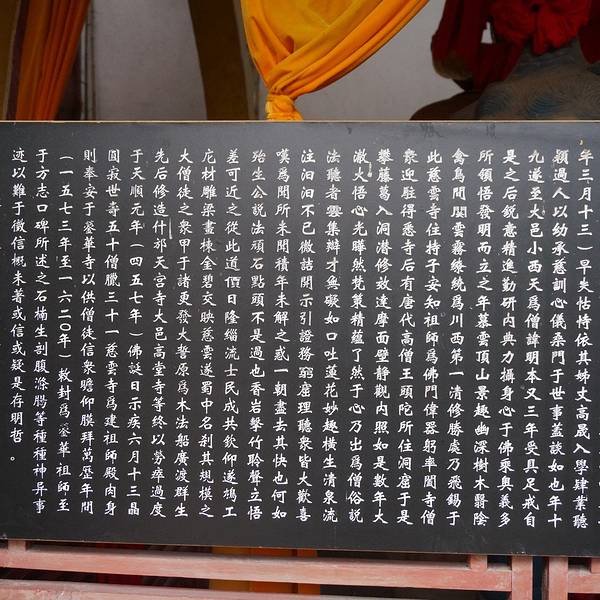 年三月十三）早失怙恃依其姊丈高晟入學肄業聽
穎過人以幼承慈訓心儀桑門于世事蓋談如也年十
九遂至大邑小西天爲僧諱明本又三年受具足戒自
是之后銳意精進勤研內典力攝身心于佛乘奧義多
所領悟發明而立之年慕雲頂山景趣幽深樹木翳陰
禽鳥間關雲霧繚繞爲川西第一清修勝處乃飛錫于
此慈雲寺住持于安知祖師爲佛門偉器躬率闔寺僧
衆迎駐得悉寺后有唐代高僧王頭陀所住洞窟于是
攀藤葛入洞潛修效達摩面壁靜觀内照如是數年大
澈大悟心光曄然梵筴精蘊了然于心乃出爲僧俗説
法聽者雲集辯才無礙如口吐蓮花妙趣橫生清泉流
注汩汩不已微詰開示引證務窮窟理聽衆皆大歡喜
嘆爲聞所未聞積年未解之惑一朝盡去其快也何如
殆生公説法頑石點頭不是過也香岩擊竹聆聲立悟
差可近之從此道價日隆緇流士民咸共欽仰遂鳩工
庀材雕梁畫棟金碧交映慈雲遂蜀中名刹其規模之
大僧徒之衆甲于諸更發大誓原爲木法船廣渡群生
先后修造什邡天宫寺大邑高堂寺等終以勞瘁過度
于天順元年（四五七年）佛誕日示疾六月十三晶
圓寂世壽五十僧臘三十一慈雲寺爲建祖師殿肉身
則奉安于寶華寺以供僧徒信衆瞻仰膜拜萬歷年間
（一五七三年至一六二〇年）敕封爲寶華祖師至
于方志口碑所述之石楠生剖腹滌腸等種種神异事
迹以難于徵信概未著或信或疑是存明哲。